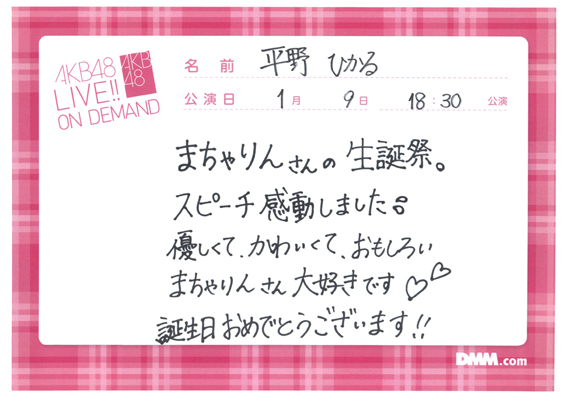 AKB48
LIVE!!
ON DEMAND
AKB
48
名前 平野 ひかる
公演日 1月 9日 18:30 公演
まちゃりんさんの生誕祭。
スピーチ感動しました
優しくて、かわいくて、おもしろい
まちゃりんさん大好きです♡♡
誕生日おめでとうございます!!
DMM.com